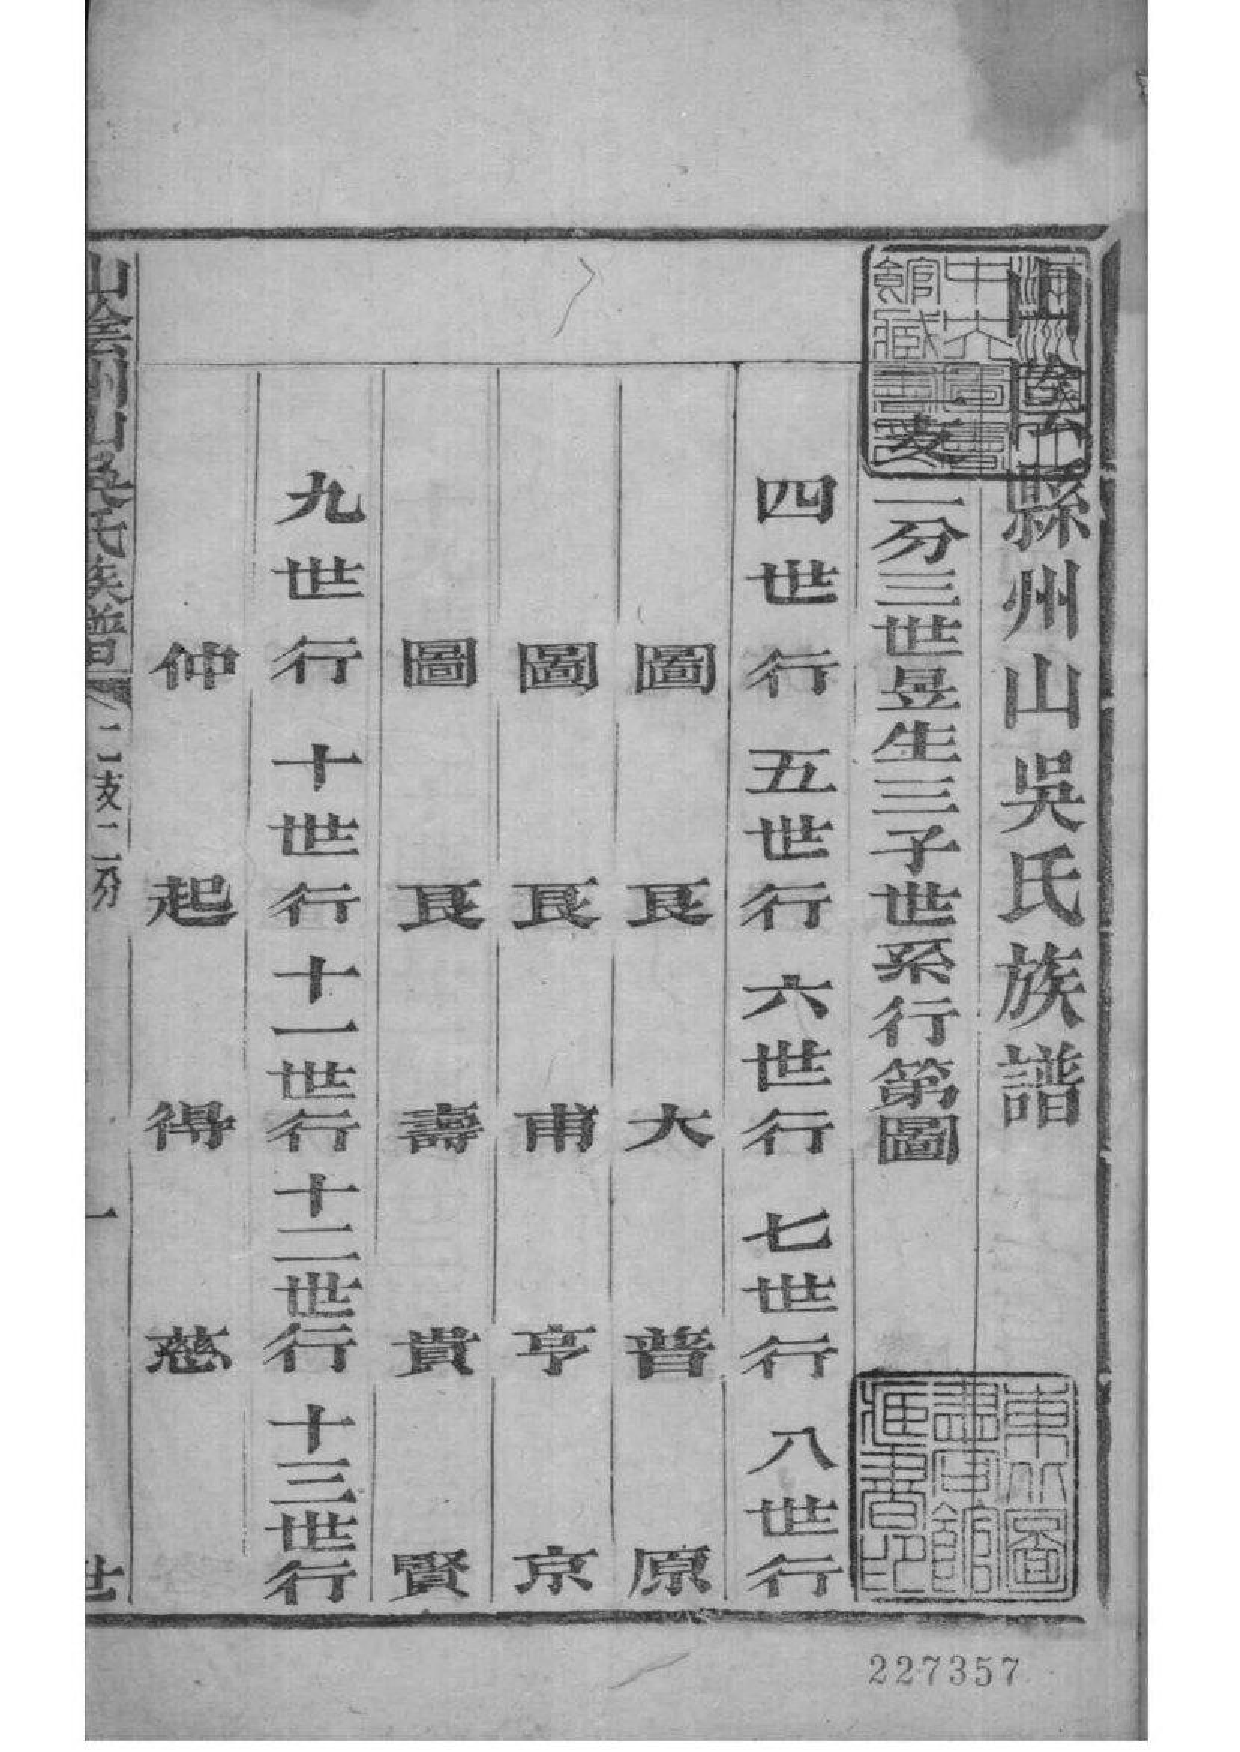 山陰縣州山吳氏族譜
支二分三世昱生三子世系行第圖
四世行 五世行 六世行 七世行 八世行
圖 良 大 普 原
圖 良 甫 亨 京
圖 良 壽 貴 賢
九世行 十世行 十一世行 十二世行 十三世行
仲 起 得 慈
山陰州山吳氏族譜 二支二分 一 世
227357